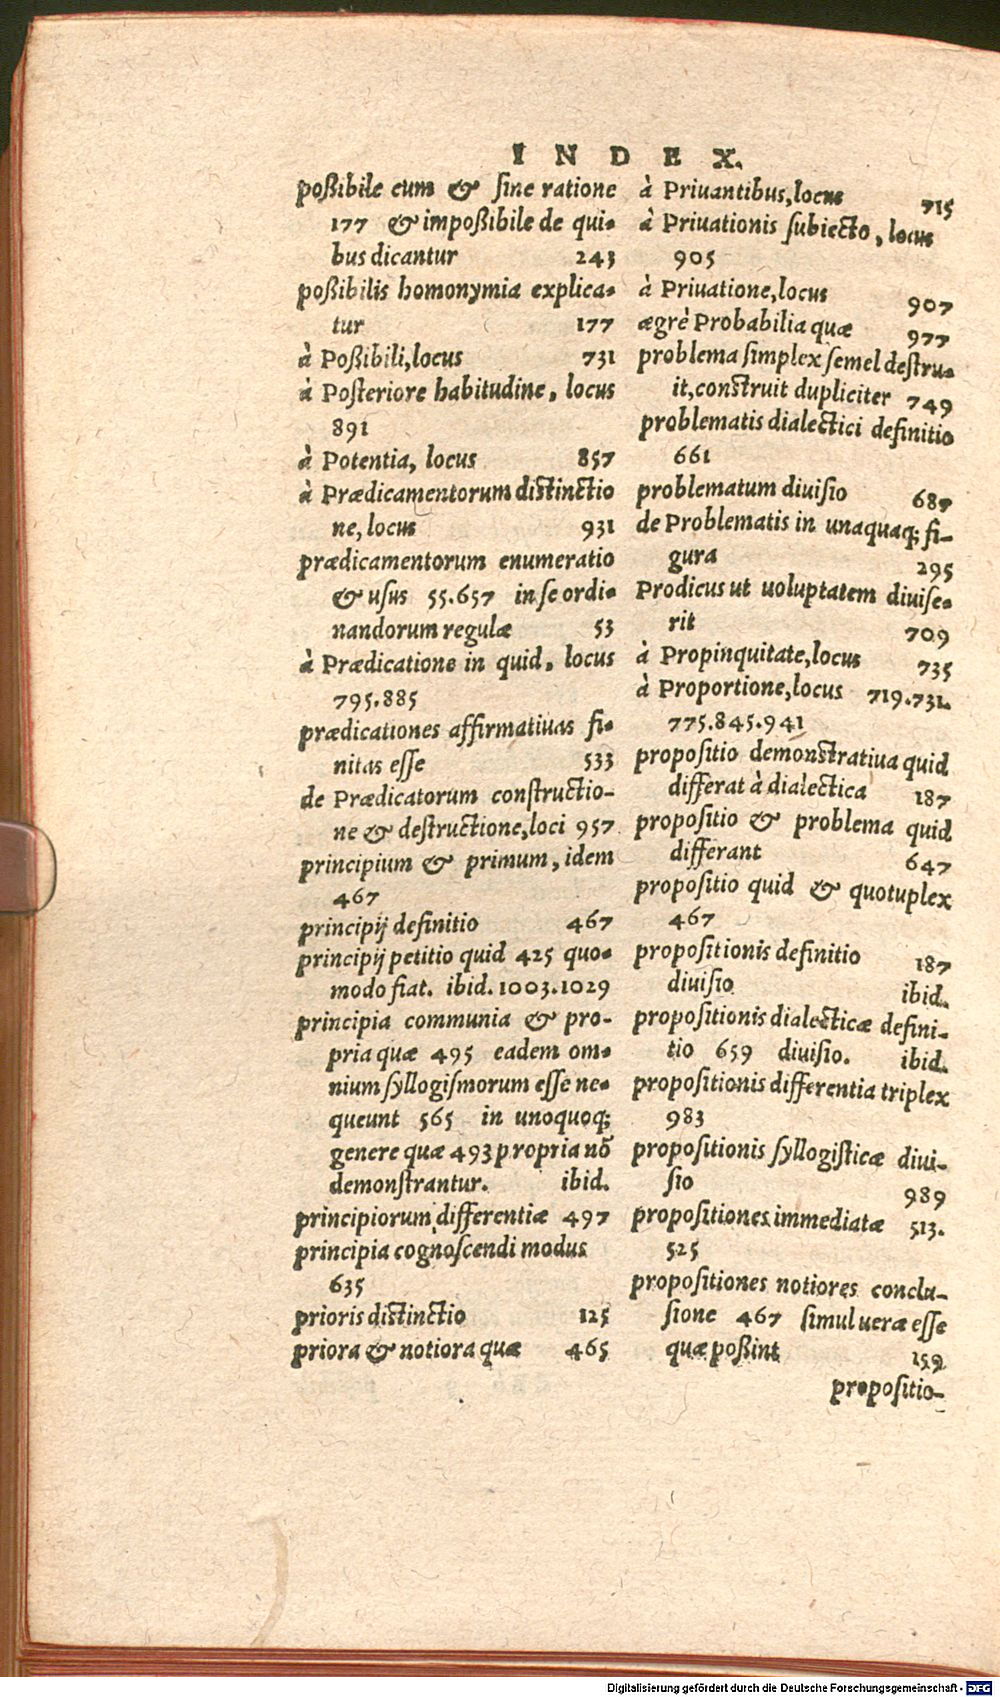 INDEX.
poßibile cum & sine ratione
177 & impoßibile de qui-
bus dicantur 243
poßibilis homonymia explica-
tur 177
à Poßibili, locus 731
à Posteriore habitudine, locus
891
à Potentia, locus 857
à Prædicamentorum distinctio
ne, locus 931
prædicamentorum enumeratio
& usus 55.657 in se ordi-
nandorum regulæ 53
à Prædicatione in quid, locus
795.885
prædicationes affirmatiuas fi-
nitas esse 533
de Prædicatorum constructio-
ne & destructione, loci 957
principium & primum, idem
467
principij definitio 467
principij petitio quid 425 quo-
modo fiat. ibid. 1003.1029
principia communia & pro-
pria quæ 495 eadem om-
nium syllogismorum esse ne-
queunt 565 in unoquoq;
genere quæ 493 propria nō
demonstrantur. ibid.
principiorum differentiæ 497
principia cognoscendi modus
635
prioris distinctio 125
priora & notiora quæ 465
à Priuantibus, locus 715
à Priuationis subiecto, locus
905
à Priuatione, locus 907
ægrè Probabilia quæ 977
problema simplex semel destru-
it, construit dupliciter 749
problematis dialectici definitio
661
problematum diuisio 687
de Problematis in unaquaq; fi-
gura 295
Prodicus ut uoluptatem diuise-
rit 709
à Propinquitate, locus 735
à Proportione, locus 719.731.
775.845.941
propositio demonstratiua quid
differat à dialectica 187
propositio & problema quid
differant 647
propositio quid & quotuplex
467
propositionis definitio 187
diuisio ibid.
propositionis dialecticæ defini-
tio 659 diuisio. ibid.
propositionis differentia triplex
983
propositionis syllogisticæ diui-
sio 989
propositiones immediatæ 513.
525
propositiones notiores conclu-
sione 467 simul ueræ esse
quæ poßint 159
propositio-
Digitalisierung gefördert durch die Deutsche Forschungsgemeinschaft - DFG